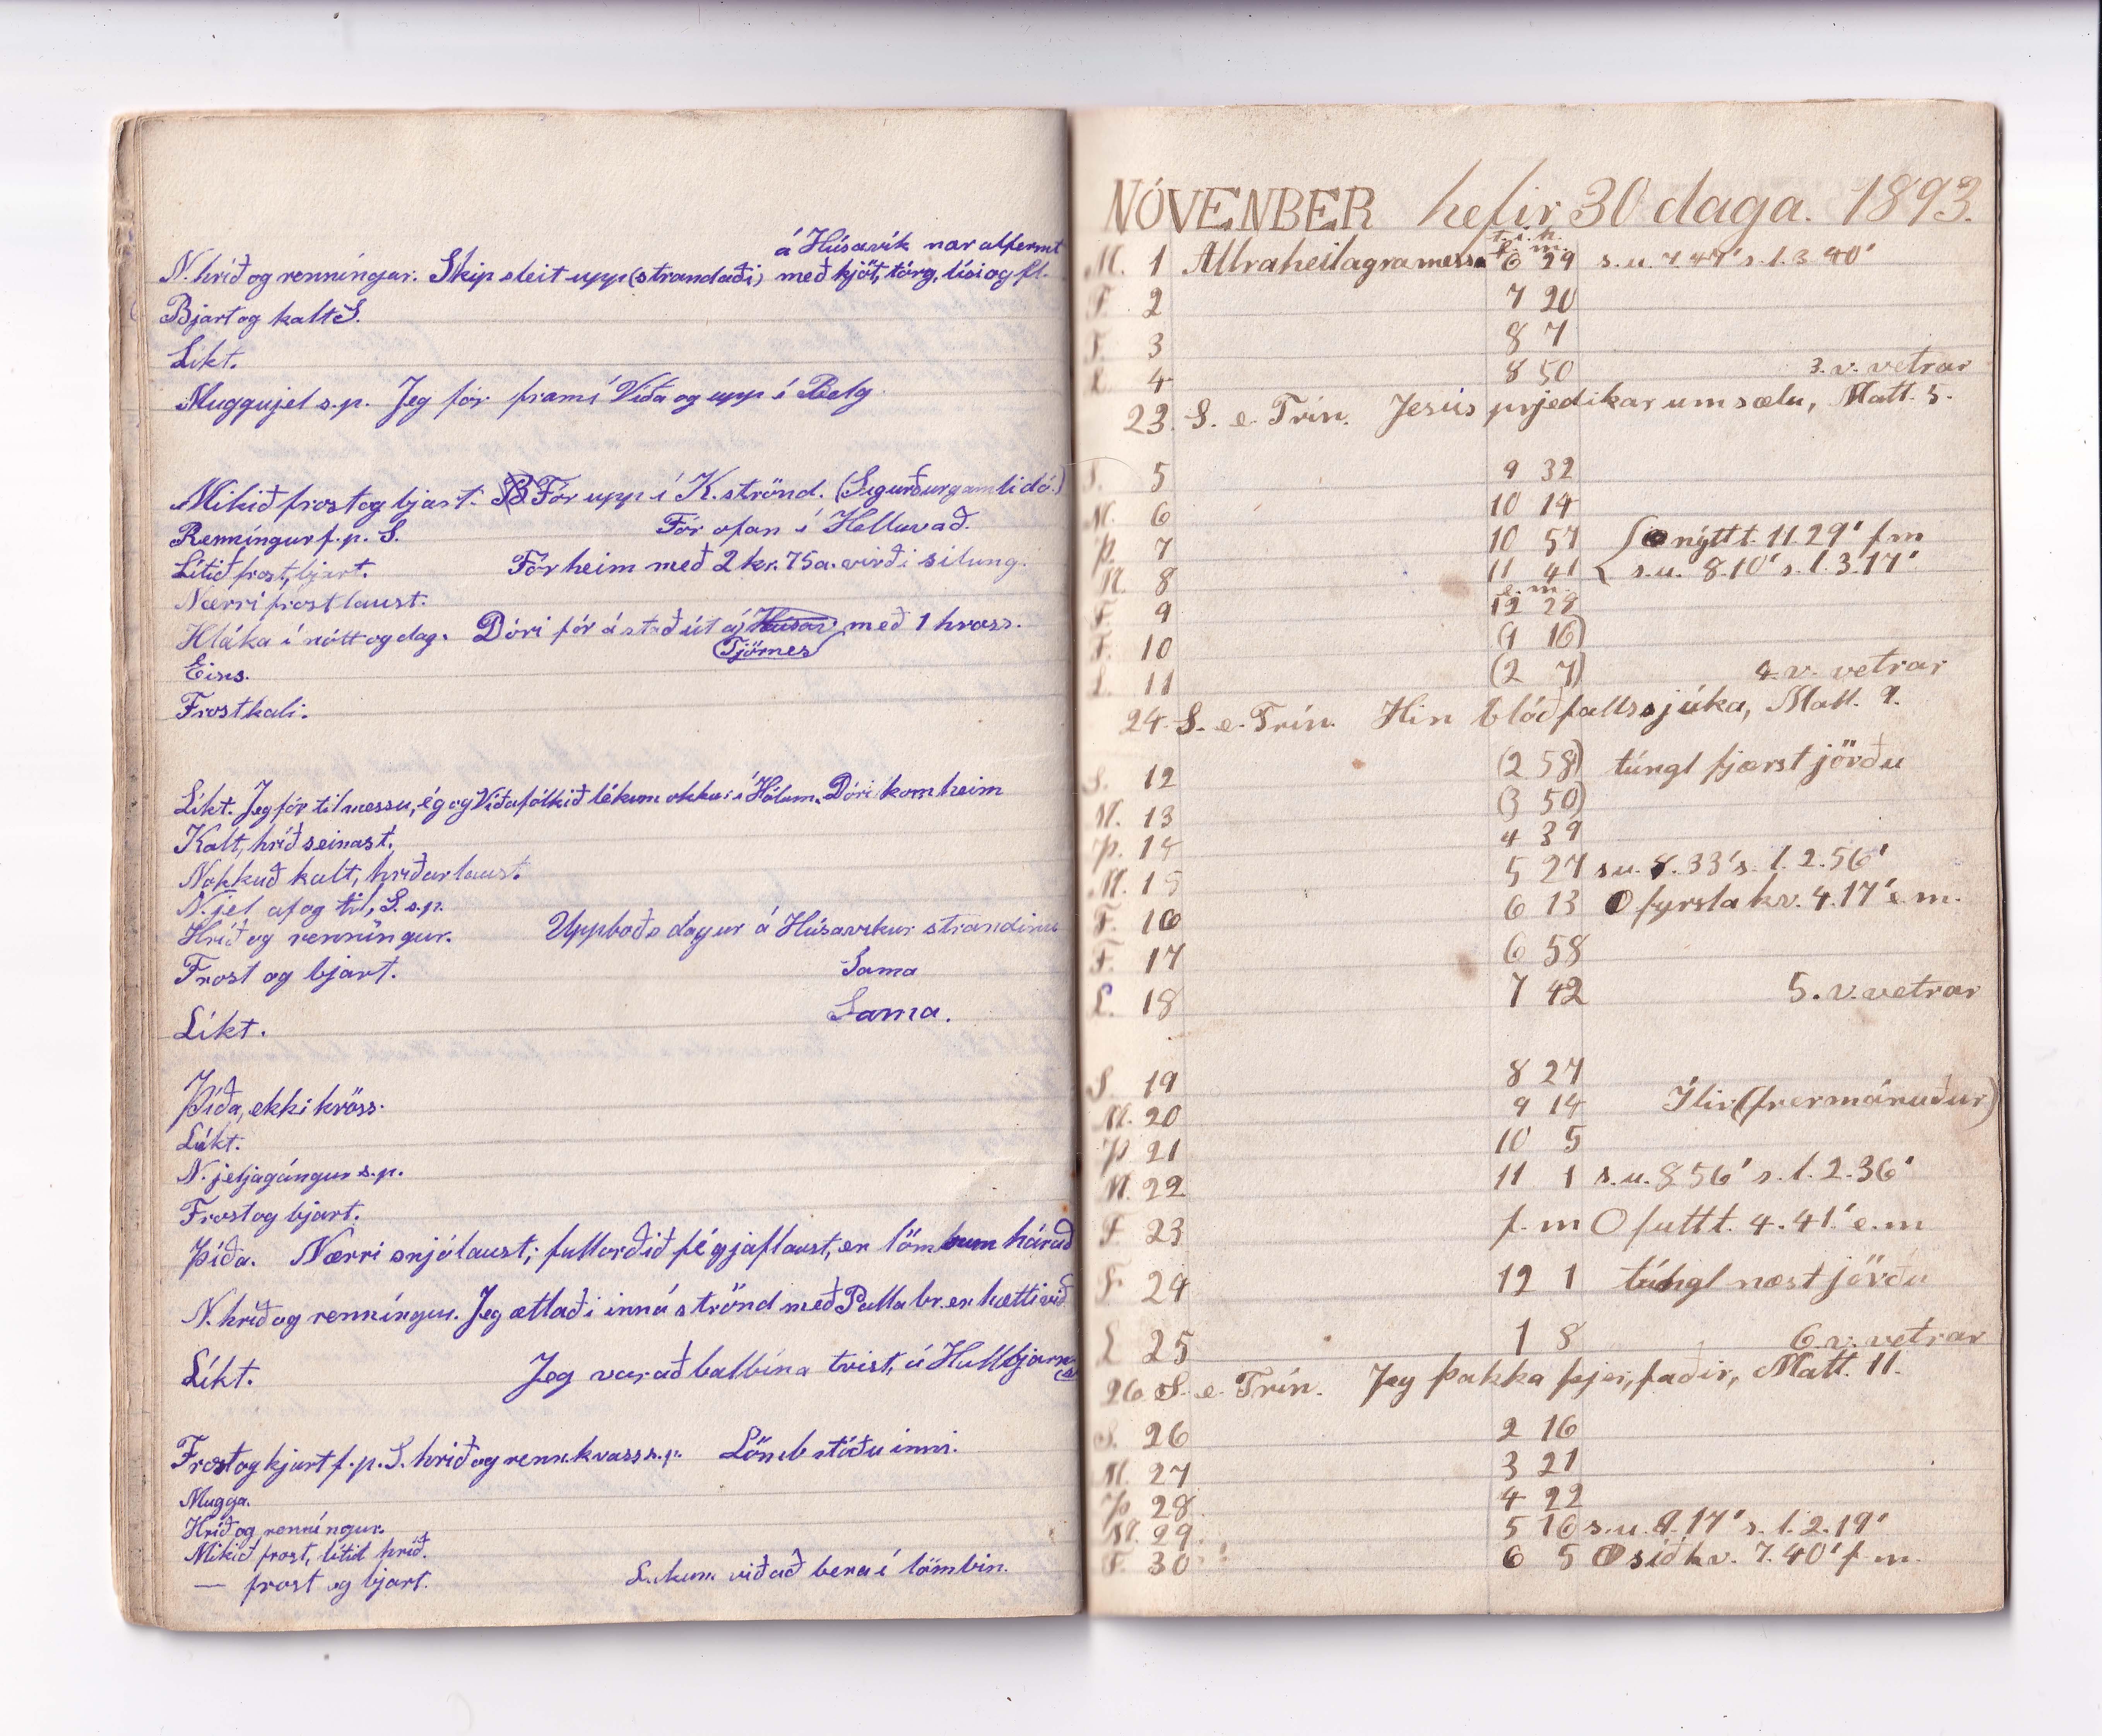 á Húsavík var alfermt
N. hríð og renníngur. Skip sleit upp (strandaði) með kjöt, tólg, lísi og fl.
Bjart og kalt S.
Líkt.
Muggujel s.p. Jeg fór fram í Víða og upp í Belg.
Mikið frost og bjart. Fór upp í K.strönd. (Sigurður gamli dó.)
Renníngur f.p. S. Fór ofan í Helluvað.
Lítið frost, bjart. Fór heim með 2 kr. 75 a. virði silung.
Nærri frostlaust.
Hláka í nótt og dag. Dóri fór á stað út á Húsav með 1 hross.
Tjörnes
Eins.
Frostkali.
Líkt. Jeg fór til messu, ég og Víðafólkið lékum okkur í Hólum. Dóri kom heim
Kalt, hríð seinast.
Nokkuð kalt, hríðarlaust.
N. jel af og til, S. s.p.
Hríð og renníngur. Uppboðs dagur á Húsavíkur strandinu
Frost og bjart. Sama
Líkt. Sama.
Þíða, ekki hvöss.
Líkt.
N. jeljagángur s.p.
Frost og bjart.
Þíða. Nærri snjólaust; fullorðið fé gjaflaust, en lömbum hárað
N. hríð og renníngur. Jeg ætlaði inná strönd með Palla br. en hætti við
Líkt. Jeg var að balbína tvist, ú Hallbjarn
Frost og bjart f.p. S. hríð og renn. hvass s.p. Lömb stóðu inni.
Mugga.
Hríð og renníngur.
Mikið frost, lítil hríð.
— frost og bjart. Lukum við að bera í lömbin.
NÓVENBER hefir 30 daga. 1893.
t. í. h.
e. m.
M. 1 Allraheilagramessa 6 29 s.u. 7.47' s.l. 3 40'
F. 2 7 20
F. 3 8 7
L. 4 8 50 3. v. vetrar
23. S. e. Trín. Jesús prjedikar um sælu, Matt. 5.
S. 5 9 32
M. 6 10 14
Þ. 7 10 57 nýtt t. 11 29' f m
M. 8 11 41 s.u. 8.10' s.l. 3.17'
e. m.
F. 9 12 28
F. 10 (1 16)
L. 11 (2 7) 4. v. vetrar
24. S. e. Trín. Hin blóðfallssjúka, Matt. 9.
S. 12 (2 58) túngl fjærst jörðu
M. 13 (3 50)
Þ. 14 4 39
M. 15 5 27 s.u. 8.33' s. l. 2.56'
F. 16 6 13 fyrsta kv. 4.17' e. m.
F. 17 6 58
L. 18 7 42 5. v. vetrar
S. 19 8 27
M. 20 9 14 Ýlir (frermánuður)
Þ 21 10 5
M. 22 11 1 s.u. 8 56' s. l. 2.36'
F 23 f. m O fullt t. 4.41' e.m
F. 24 12 1 túngl næst jörðu
L 25 1 8 6. v. vetrar
26. S. e. Trín. Jeg þakka þjer, faðir, Matt. 11.
S. 26 2 16
M. 27 3 21
Þ 28 4 22
M. 29. 5 16 s.u. 9.17' s. l. 2.19'
F. 30 6 5 síð. kv. 7.40' f m.